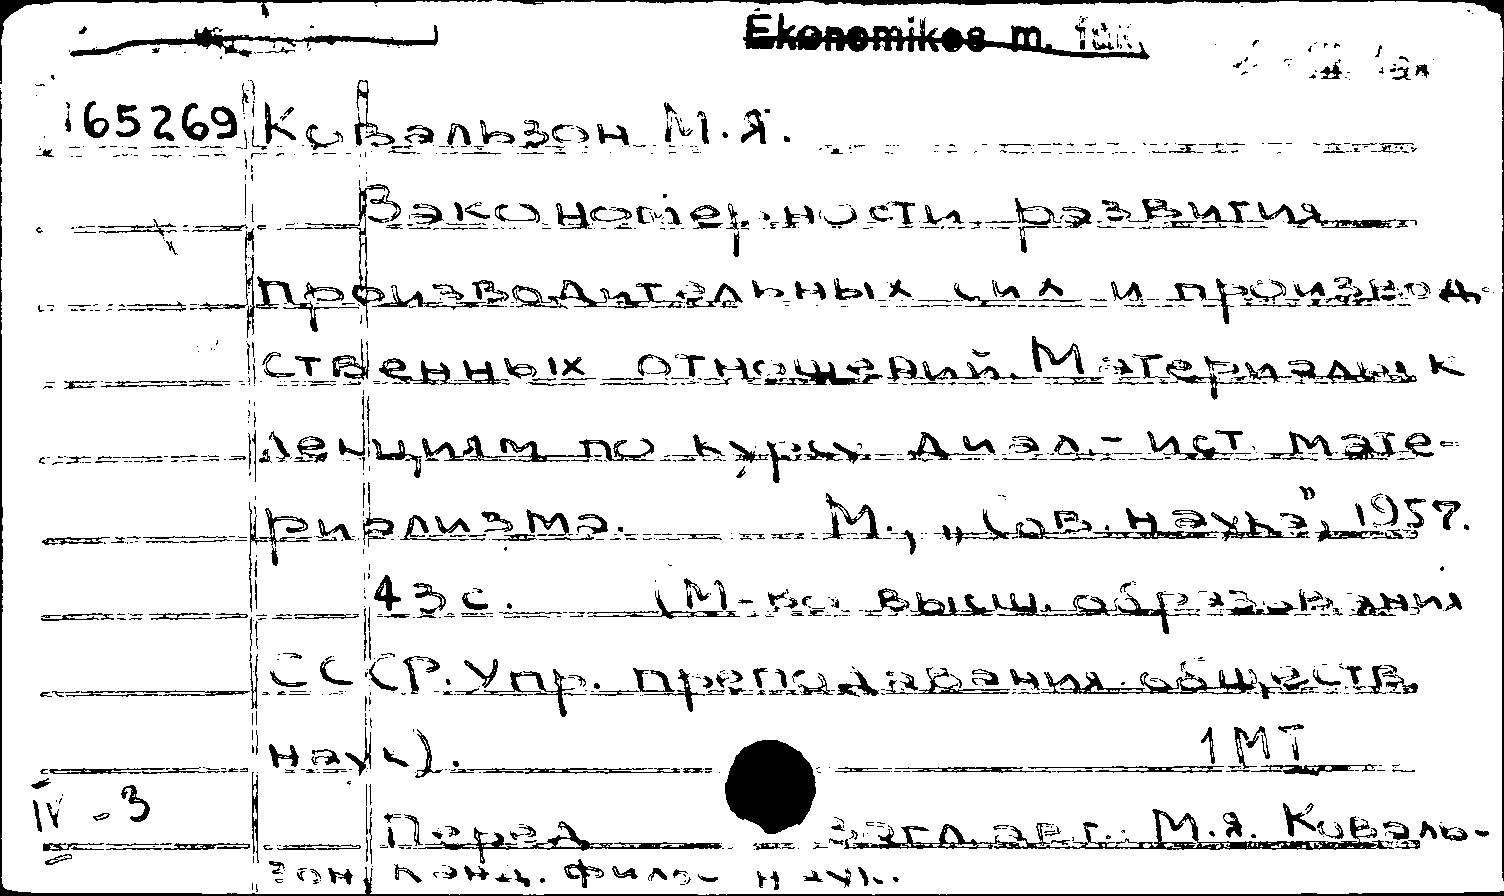 Ekonomikos m. fak.
165269 Ковальзон М.Я.
Закономерности развития
производительных сил и производ-
ственных отношений. Материалы к
лекциям по курсу диал.-ист. мате-
риализма. М., „Сов. наука", 1957.
43 с. (М-во высш. образования
СССР. Упр. преподавания обществ.
наук). 1МТ
IV-3 Перед загл. авт.: М.Я. Коваль-
зон, канд. филос. наук.